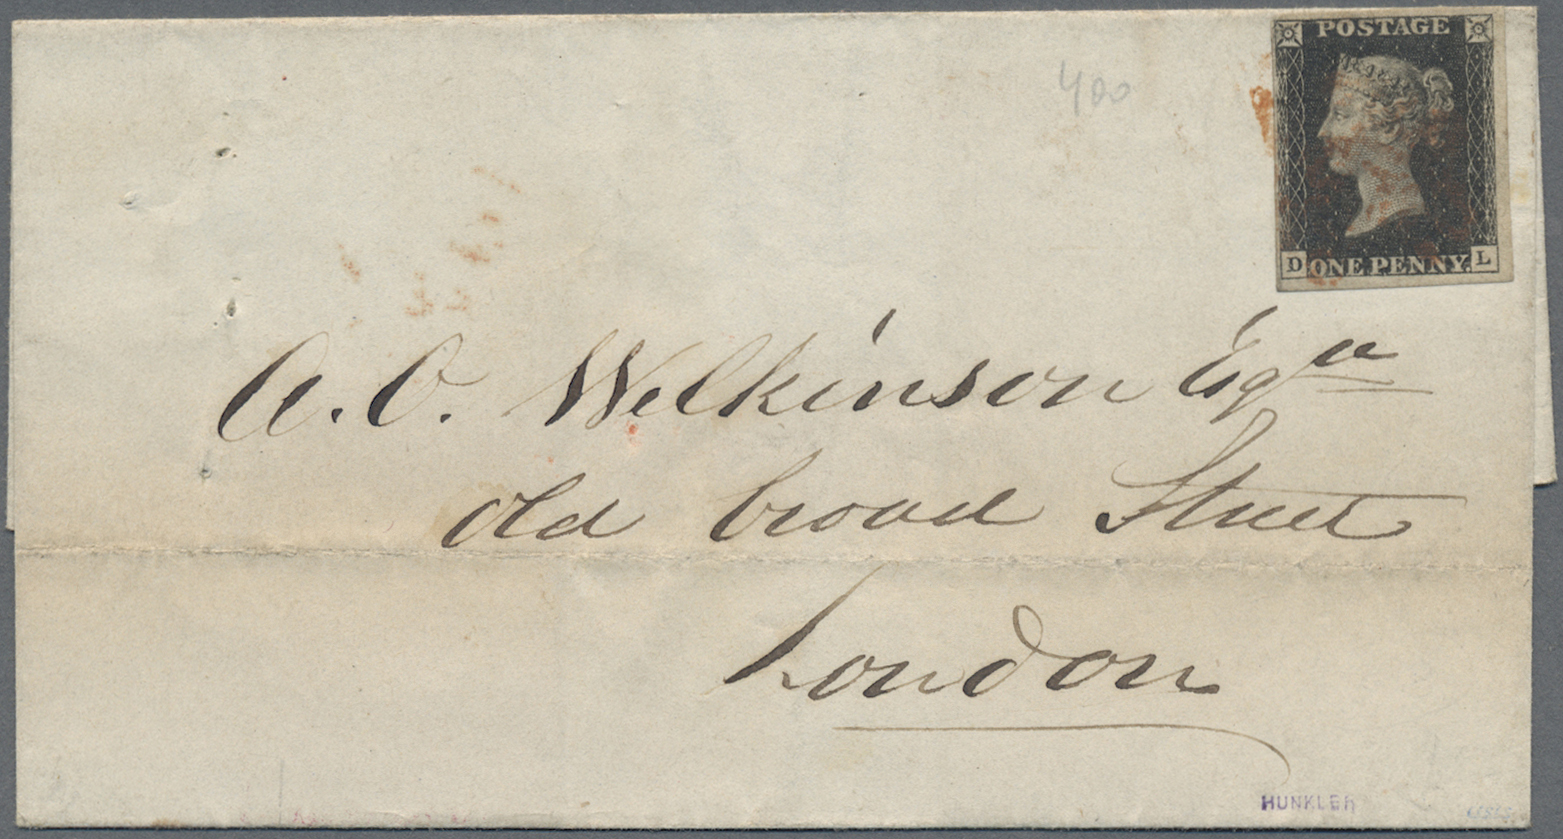 POSTAGE
400
D ONE PENNY. L
A. O. Wilkinson Esqr
old broad Street
London
HUNKLER